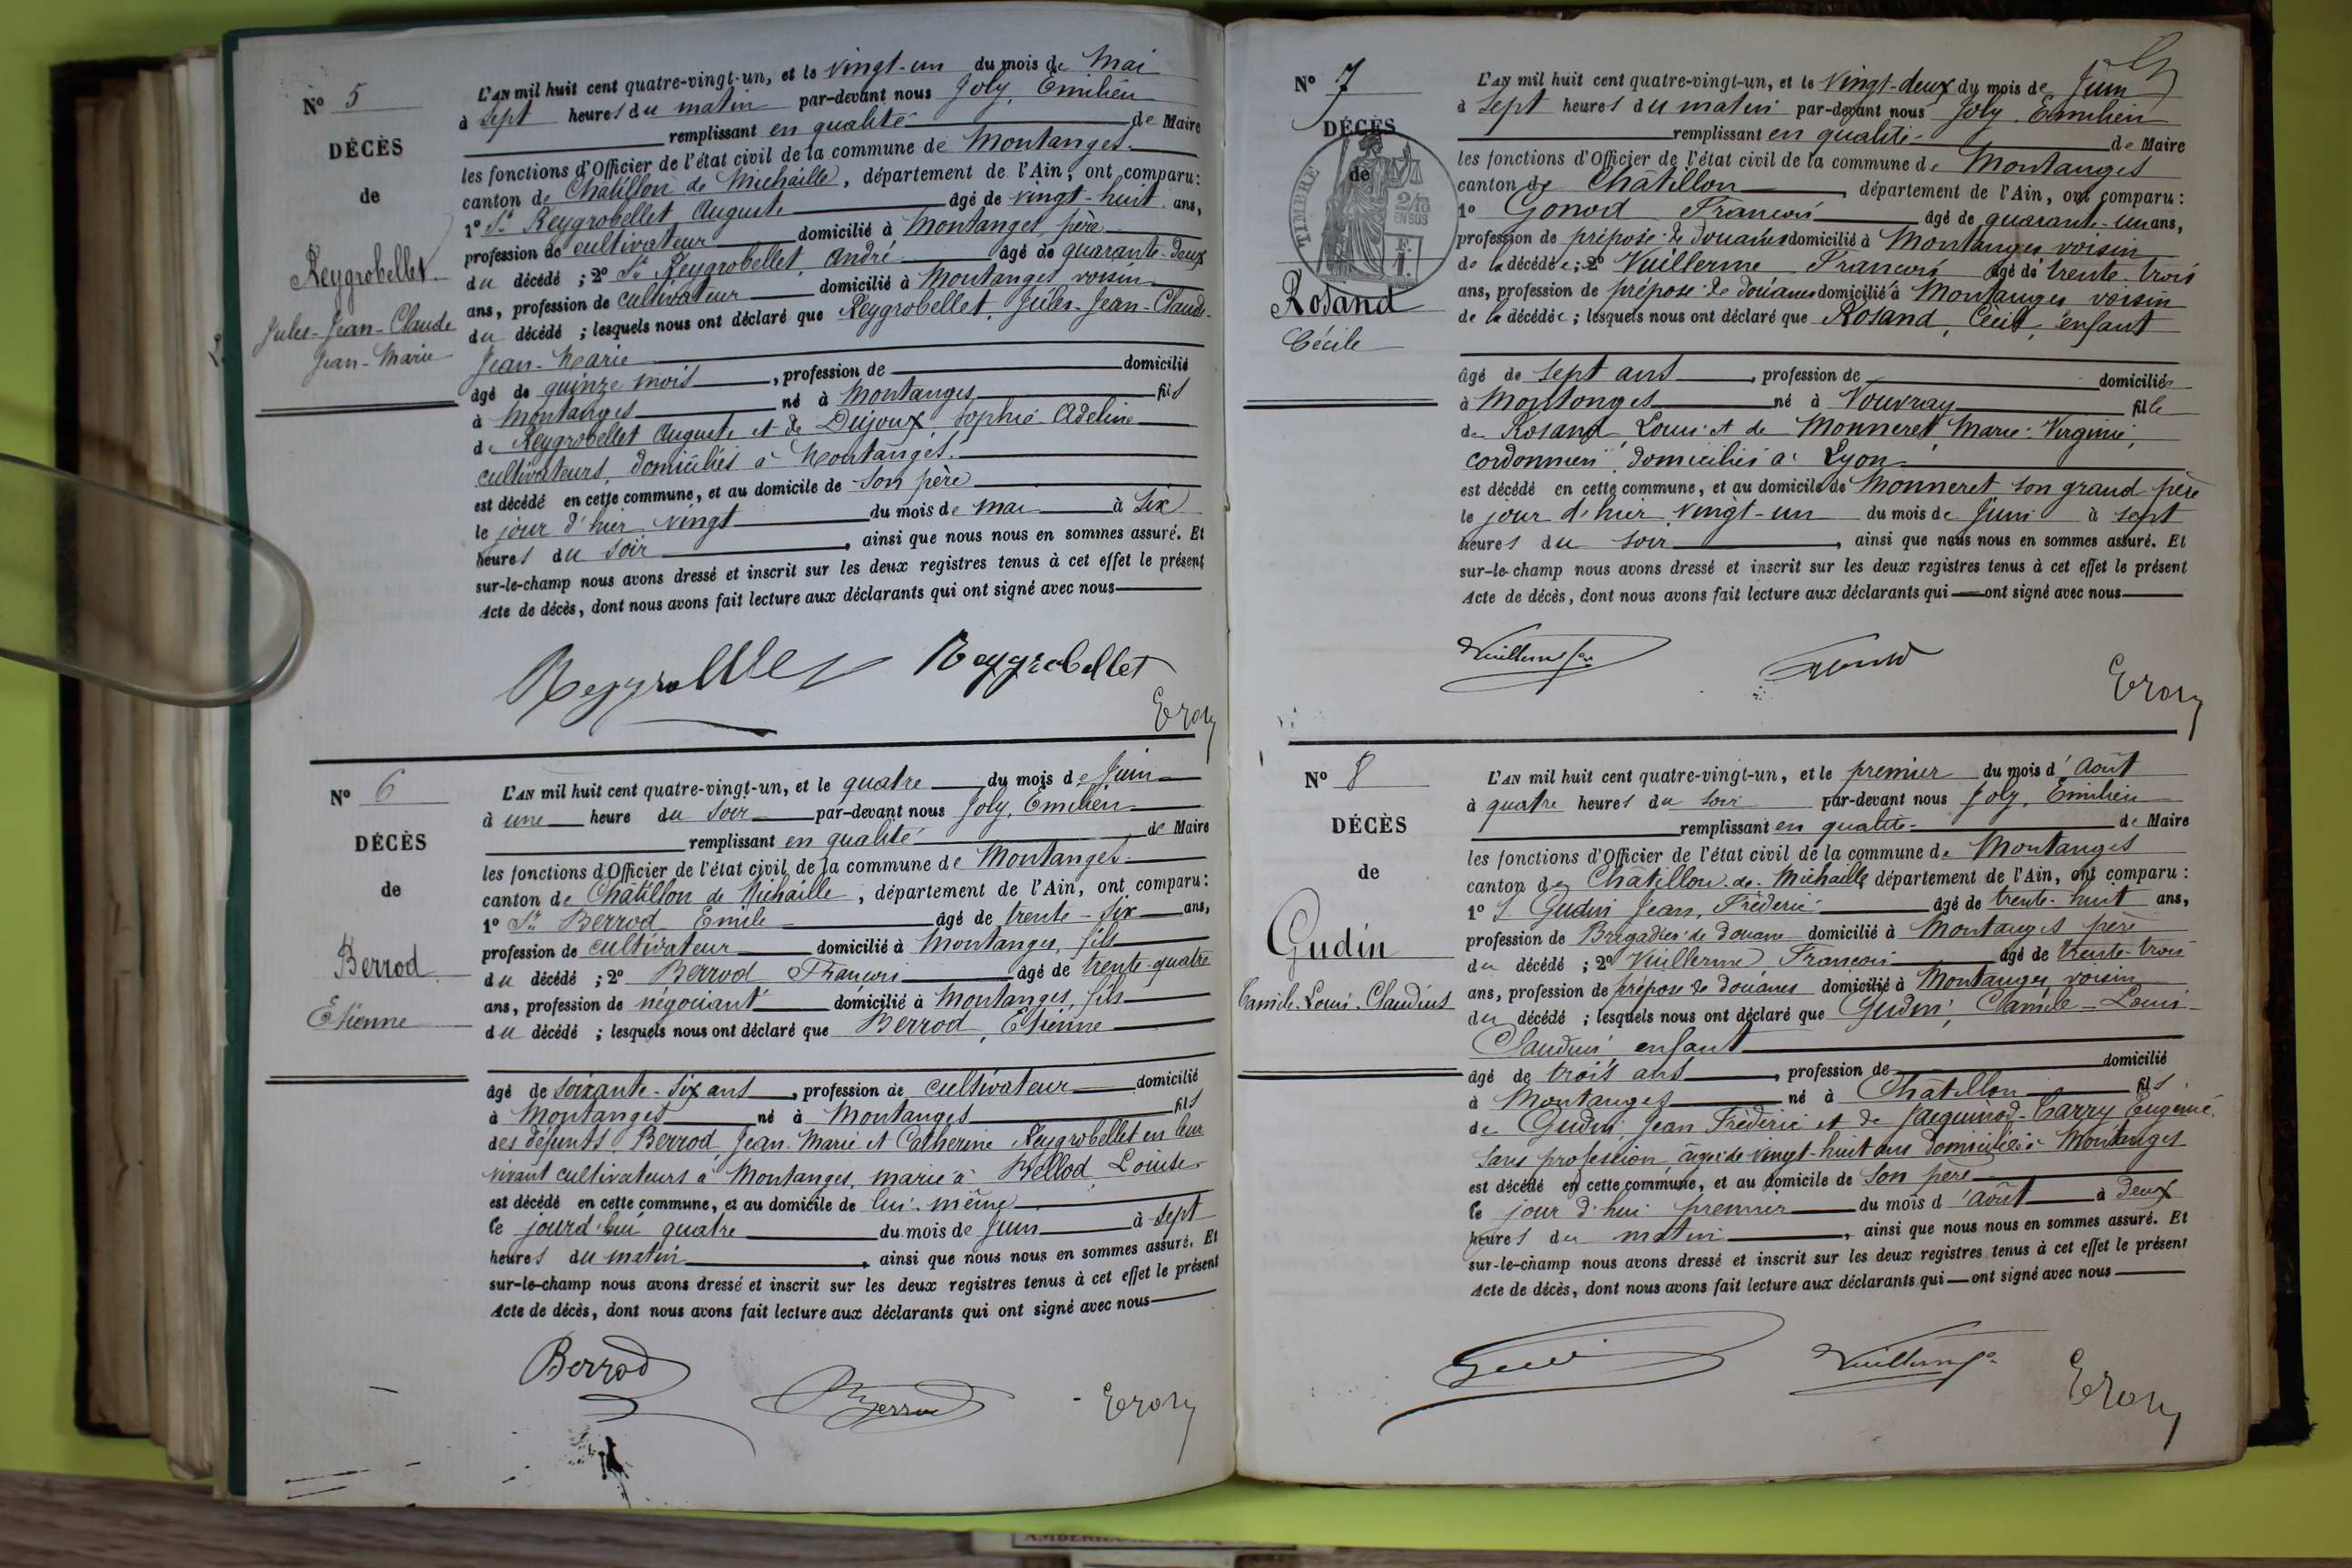 N° 5
DÉCÈS
de
Reygrobellet
Jules-Jean-Claude
Jean-Marie
L'AN mil huit cent quatre-vingt-un, et le vingt-un du mois de Mai
à sept heures du matin par-devant nous Joly, Emilien
remplissant en qualité de Maire
les fonctions d'Officier de l'état civil de la commune de Montanges
canton de Châtillon de Michaille, département de l'Ain, ont comparu:
1° Sr Reygrobellet Auguste âgé de vingt-huit ans,
profession de cultivateur domicilié à Montanges, père
du décédé ; 2° Sr Reygrobellet, André âgé de quarante-deux
ans, profession de cultivateur domicilié à Montanges voisin
du décédé ; lesquels nous ont déclaré que Reygrobellet, Jules-Jean-Claude-
Jean-Marie
âgé de quinze mois, profession de domicilié
à Montanges né à Montanges fils
de Reygrobellet Auguste et de Dujoux, Sophie Adeline
cultivateurs, domiciliés à Montanges.
est décédé en cette commune, et au domicile de son père
le jour d'hier vingt du mois de mai à six
heures du soir, ainsi que nous nous en sommes assuré. Et
sur-le-champ nous avons dressé et inscrit sur les deux registres tenus à cet effet le présent
Acte de décès, dont nous avons fait lecture aux déclarants qui ont signé avec nous
Reygrobellet
N° 6
DÉCÈS
de
Berrod
Etienne
L'AN mil huit cent quatre-vingt-un, et le quatre du mois de Juin
à une heure du soir par-devant nous Joly, Emilien
remplissant en qualité de Maire
les fonctions d'Officier de l'état civil de la commune de Montanges
canton de Châtillon de Michaille, département de l'Ain, ont comparu:
1° Sr Berrod Emile âgé de trente-six ans,
profession de cultivateur domicilié à Montanges, fils
du décédé ; 2° Berrod François âgé de trente-quatre
ans, profession de négociant domicilié à Montanges, fils
du décédé ; lesquels nous ont déclaré que Berrod, Etienne
âgé de soixante-six ans, profession de cultivateur domicilié
à Montanges né à Montanges fils
des défunts Berrod Jean Marie et Catherine Reygrobellet en leur
vivant cultivateurs à Montanges, marié à Bellod Louise
est décédé en cette commune, et au domicile de lui-même
le jourd'hui quatre du mois de Juin à sept
heures du matin, ainsi que nous nous en sommes assuré. Et
sur-le-champ nous avons dressé et inscrit sur les deux registres tenus à cet effet le présent
Acte de décès, dont nous avons fait lecture aux déclarants qui ont signé avec nous
Berrod Berrod
N° 7
DÉCÈS
de
TIMBRE
2/10
EN SUS
Rosand
Cécile
L'AN mil huit cent quatre-vingt-un, et le vingt-deux du mois de Juin
à sept heures du matin par-devant nous Joly, Emilien
remplissant en qualité de Maire
les fonctions d'Officier de l'état civil de la commune de Montanges
canton de Châtillon, département de l'Ain, ont comparu:
1° Gonod François âgé de quarante-un ans,
profession de préposé de douanes domicilié à Montanges, voisin
de la décédée ; 2° Vuillerme François âgé de trente-trois
ans, profession de préposé de douanes domicilié à Montanges voisin
de la décédée ; lesquels nous ont déclaré que Rosand, Cécile, enfant
âgé de sept ans, profession de domiciliée
à Montanges né à Vouvray fille
de Rosand Louis et de Monneret Marie-Virginie,
cordonniers, domiciliés à Lyon
est décédé en cette commune, et au domicile de Monneret son grand père
le jour d'hier vingt-un du mois de Juin à sept
heures du soir, ainsi que nous nous en sommes assuré. Et
sur-le-champ nous avons dressé et inscrit sur les deux registres tenus à cet effet le présent
Acte de décès, dont nous avons fait lecture aux déclarants qui ont signé avec nous
N° 8
DÉCÈS
de
Gudin
Camile-Louis-Claudius
L'AN mil huit cent quatre-vingt-un, et le premier du mois d'Août
à quatre heures du soir par-devant nous Joly, Emilien
remplissant en qualité de Maire
les fonctions d'Officier de l'état civil de la commune de Montanges
canton de Châtillon de Michaille département de l'Ain, ont comparu:
1° S. Gudin Jean, Frédéric âgé de trente-huit ans,
profession de Brigadier de douane domicilié à Montanges père
du décédé ; 2° Vuillerme, François âgé de trente-trois
ans, profession de préposé de douanes domicilié à Montanges, voisin
du décédé ; lesquels nous ont déclaré que Gudin, Camile-Louis-
Claudius, enfant
âgé de trois ans, profession de domicilié
à Montanges né à Châtillon fils
de Gudin Jean Frédéric et de Jacquinod-Carry Eugénie,
sans profession, âgée de vingt-huit ans domiciliés à Montanges
est décédé en cette commune, et au domicile de son père
le jour d'hui premier du mois d'Août à deux
heures du matin, ainsi que nous nous en sommes assuré. Et
sur-le-champ nous avons dressé et inscrit sur les deux registres tenus à cet effet le présent
Acte de décès, dont nous avons fait lecture aux déclarants qui ont signé avec nous